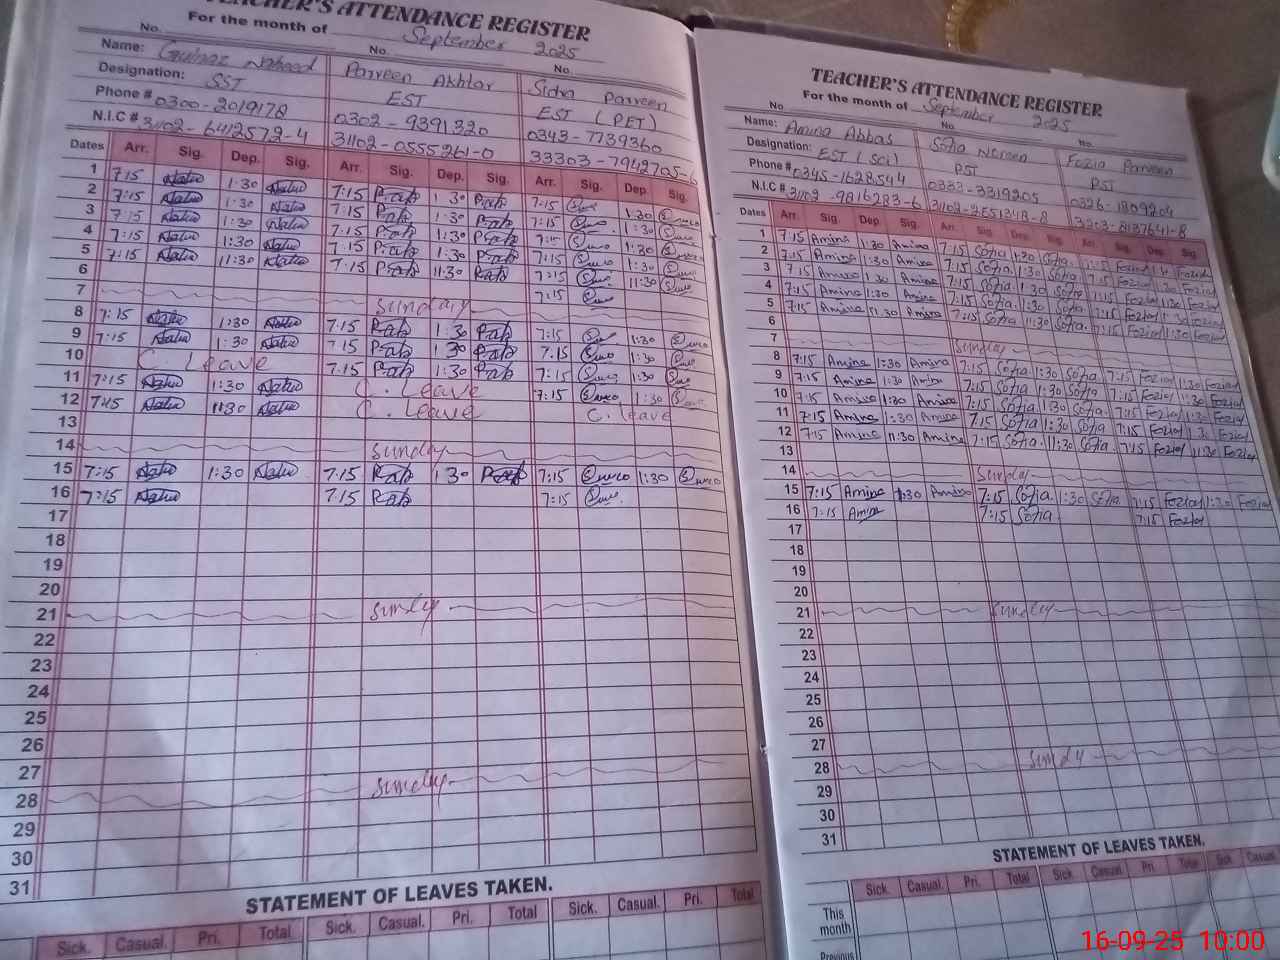 TEACHER'S ATTENDANCE REGISTER
For the month of September 2025
No. No. No.
Name: Gulnaz Naheed Parveen Akhtar Sidra Parveen
Designation: SST EST EST (PET)
Phone # 0300-2019178 0302-9391320 0343-7739360
N.I.C # 31102-6412572-4 31102-0555261-0 33303-7942705-6
Dates Arr. Sig. Dep. Sig. Arr. Sig. Dep. Sig. Arr. Sig. Dep. Sig.
1 7:15 1:30 7:15 1:30 7:15 1:30
2 7:15 1:30 7:15 1:30 7:15 1:30
3 7:15 1:30 7:15 1:30 7:15 1:30
4 7:15 1:30 7:15 1:30 7:15 1:30
5 7:15 11:30 7:15 11:30 7:15 11:30
6 7:15
7 Sunday
8 7:15 1:30 7:15 1:30 7:15 1:30
9 7:15 1:30 7:15 1:30 7:15 1:30
10 C. Leave 7:15 1:30 7:15 1:30
11 7:15 1:30 C. Leave 7:15 1:30
12 7:15 11:30 C. Leave C. leave
13
14 Sunday
15 7:15 1:30 7:15 1:30 7:15 1:30
16 7:15 7:15 7:15
17
18
19
20
21 Sundy
22
23
24
25
26
27
28 Sunday
29
30
31
STATEMENT OF LEAVES TAKEN.
Sick. Casual. Pri. Total Sick. Casual. Pri. Total Sick. Casual. Pri. Total
TEACHER'S ATTENDANCE REGISTER
For the month of September 2025
No. No. No.
Name: Amina Abbas Sofia Noreen Fozia Parveen
Designation: EST (Sci) PST PST
Phone # 0345-1628544 0333-3319205 0326-1809204
N.I.C # 31102-9816283-6 31102-2651348-8
Dates Arr. Sig. Dep. Sig. Arr. Sig. Dep. Sig. Arr. Sig. Dep. Sig.
1 7:15 Amina 1:30 Amina 7:15 Sofia 1:30 Sofia 7:15 Fozia 1:30 Fozia
2 7:15 Amina 1:30 Amina 7:15 Sofia 1:30 Sofia 7:15 Fozia 1:30 Fozia
3 7:15 Amina 1:30 Amina 7:15 Sofia 1:30 Sofia 7:15 Fozia 1:30 Fozia
4 7:15 Amina 1:30 Amina 7:15 Sofia 1:30 Sofia 7:15 Fozia 1:30 Fozia
5 7:15 Amina 11:30 Amina 7:15 Sofia 11:30 Sofia 7:15 Fozia 11:30 Fozia
6
7 Sunday
8 7:15 Amina 1:30 Amina 7:15 Sofia 1:30 Sofia 7:15 Fozia 1:30 Fozia
9 7:15 Amina 1:30 Amina 7:15 Sofia 1:30 Sofia 7:15 Fozia 1:30 Fozia
10 7:15 Amina 1:30 Amina 7:15 Sofia 1:30 Sofia 7:15 Fozia 1:30 Fozia
11 7:15 Amina 1:30 Amina 7:15 Sofia 1:30 Sofia 7:15 Fozia 1:30 Fozia
12 7:15 Amina 11:30 Amina 7:15 Sofia 11:30 Sofia 7:15 Fozia 11:30 Fozia
13
14 Sunday
15 7:15 Amina 1:30 Amina 7:15 Sofia 1:30 Sofia 7:15 Fozia 1:30 Fozia
16 7:15 Amina 7:15 Sofia 7:15 Fozia
17
18
19
20
21 Sundy
22
23
24
25
26
27
28 Sundy
29
30
31
STATEMENT OF LEAVES TAKEN.
Sick. Casual. Pri. Total Sick. Casual. Pri. Total Sick. Casual.
This month
Previous
16-09-25 10:00